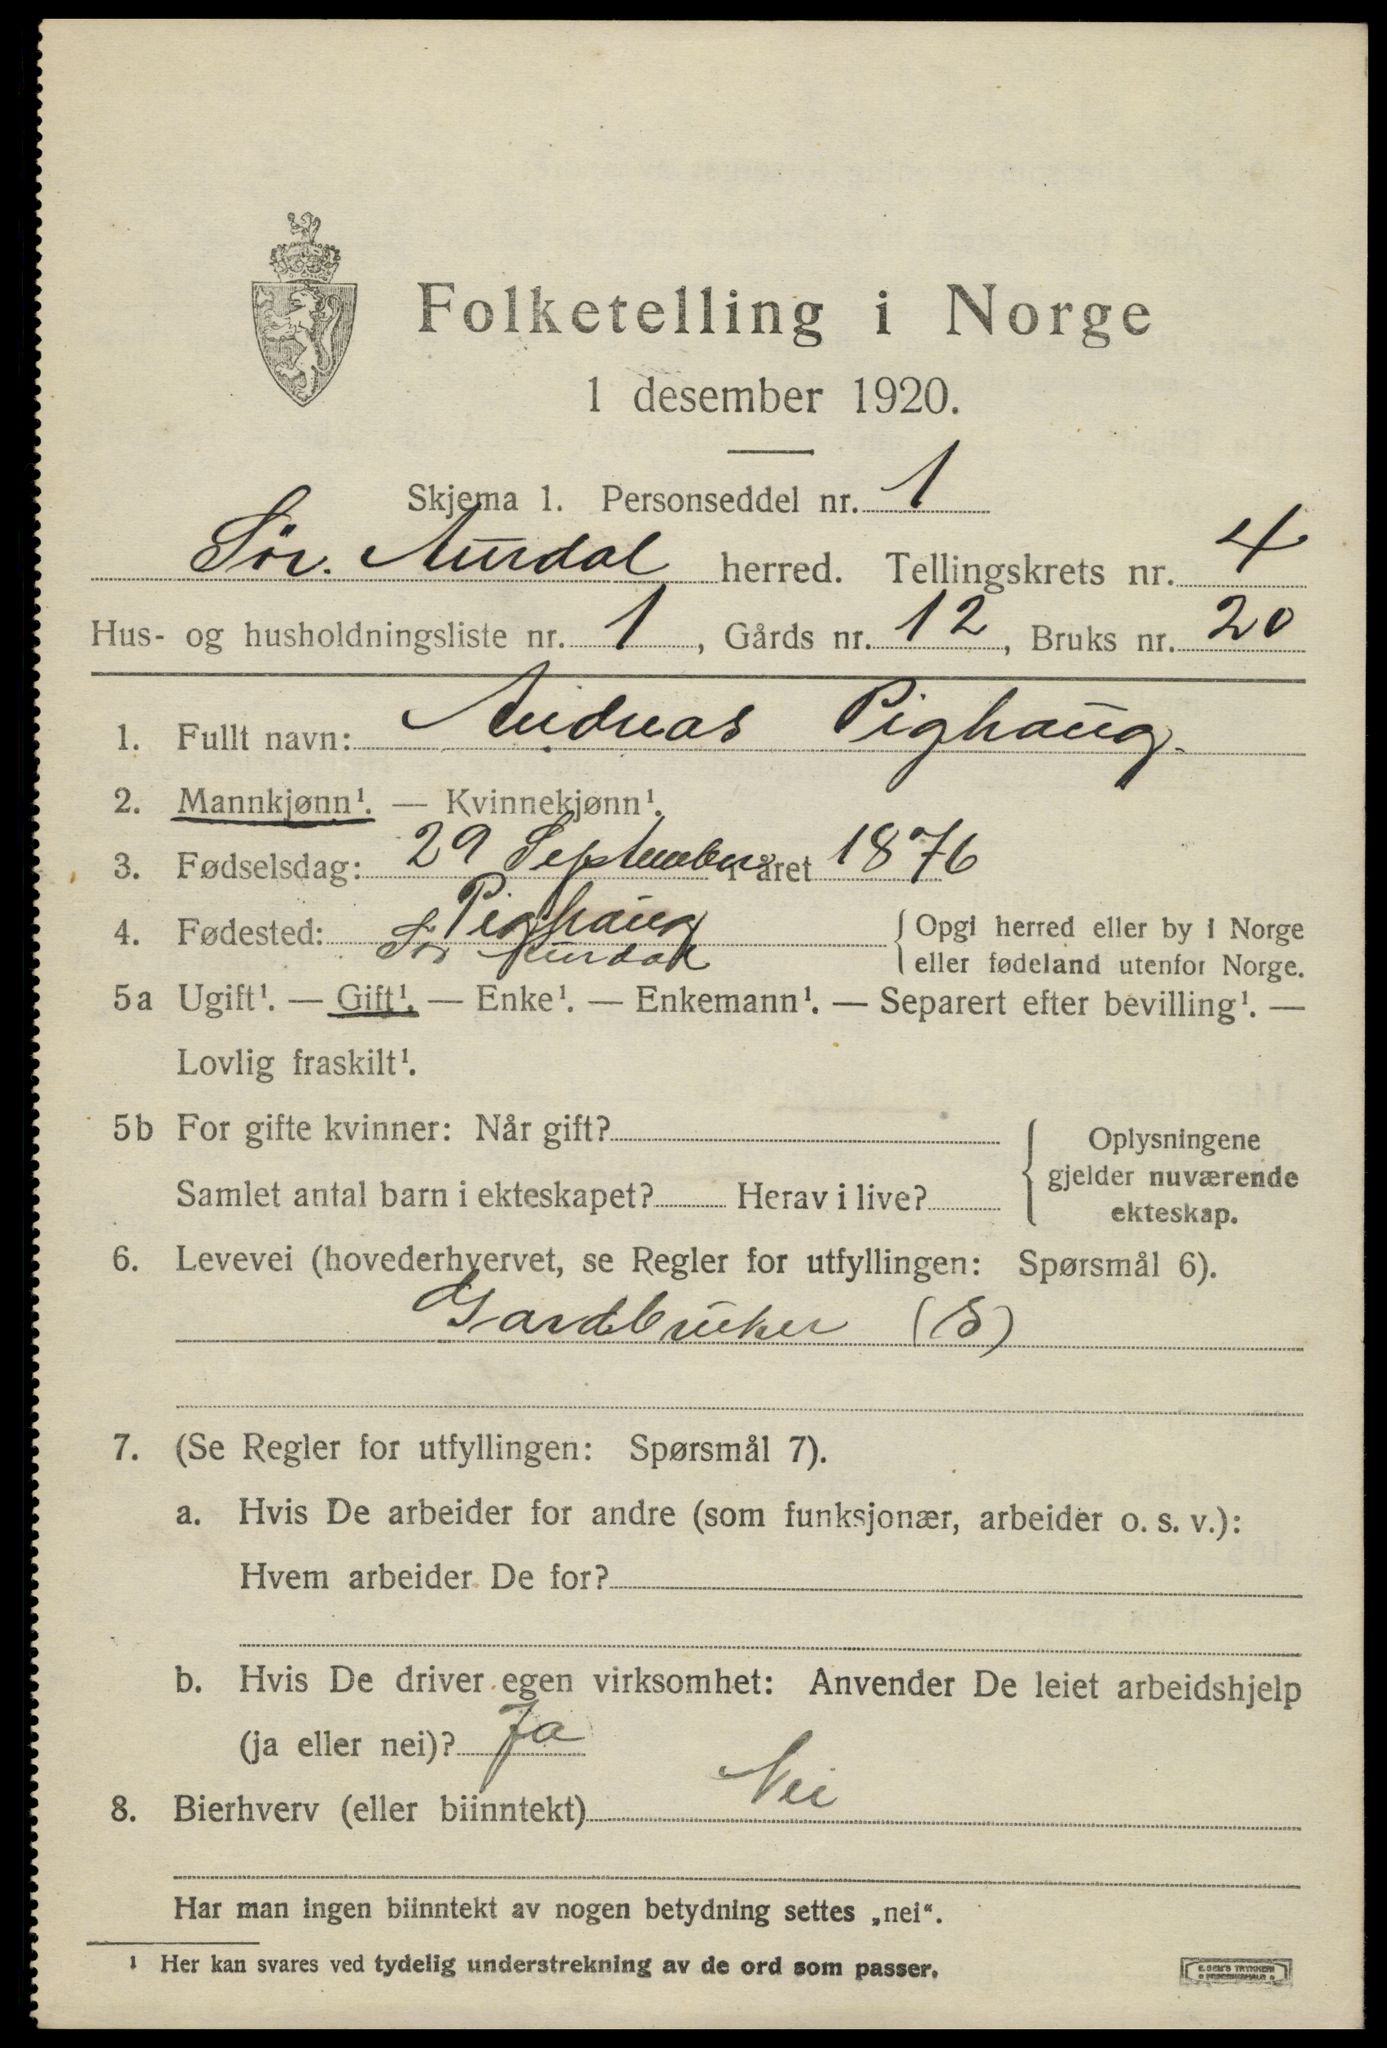 Folketelling i Norge
1 desember 1920.
Skjema 1. Personseddel nr. 1
Sør. Aurdal herred. Tellingskrets nr. 4
Hus- og husholdningsliste nr. 1, Gårds nr. 12, Bruks nr. 20
1. Fullt navn: Andreas Pighaug.
2. Mannkjønn¹. — Kvinnekjønn¹.
3. Fødselsdag: 29 September i året 1876
4. Fødested: Pighaug { Opgi herred eller by i Norge
Sør Aurdal eller fødeland utenfor Norge.
5a Ugift¹. — Gift¹. — Enke¹. — Enkemann¹. — Separert efter bevilling¹. —
Lovlig fraskilt¹.
5b For gifte kvinner: Når gift? { Oplysningene
gjelder nuværende
Samlet antal barn i ekteskapet? Herav i live? ekteskap.
6. Levevei (hovederhvervet, se Regler for utfyllingen: Spørsmål 6).
Gardbruker (S)
7. (Se Regler for utfyllingen: Spørsmål 7).
a. Hvis De arbeider for andre (som funksjonær, arbeider o. s. v.):
Hvem arbeider De for?
b. Hvis De driver egen virksomhet: Anvender De leiet arbeidshjelp
(ja eller nei)? Ja
8. Bierhverv (eller biinntekt) Nei
Har man ingen biinntekt av nogen betydning settes „nei“.
¹ Her kan svares ved tydelig understrekning av de ord som passer.